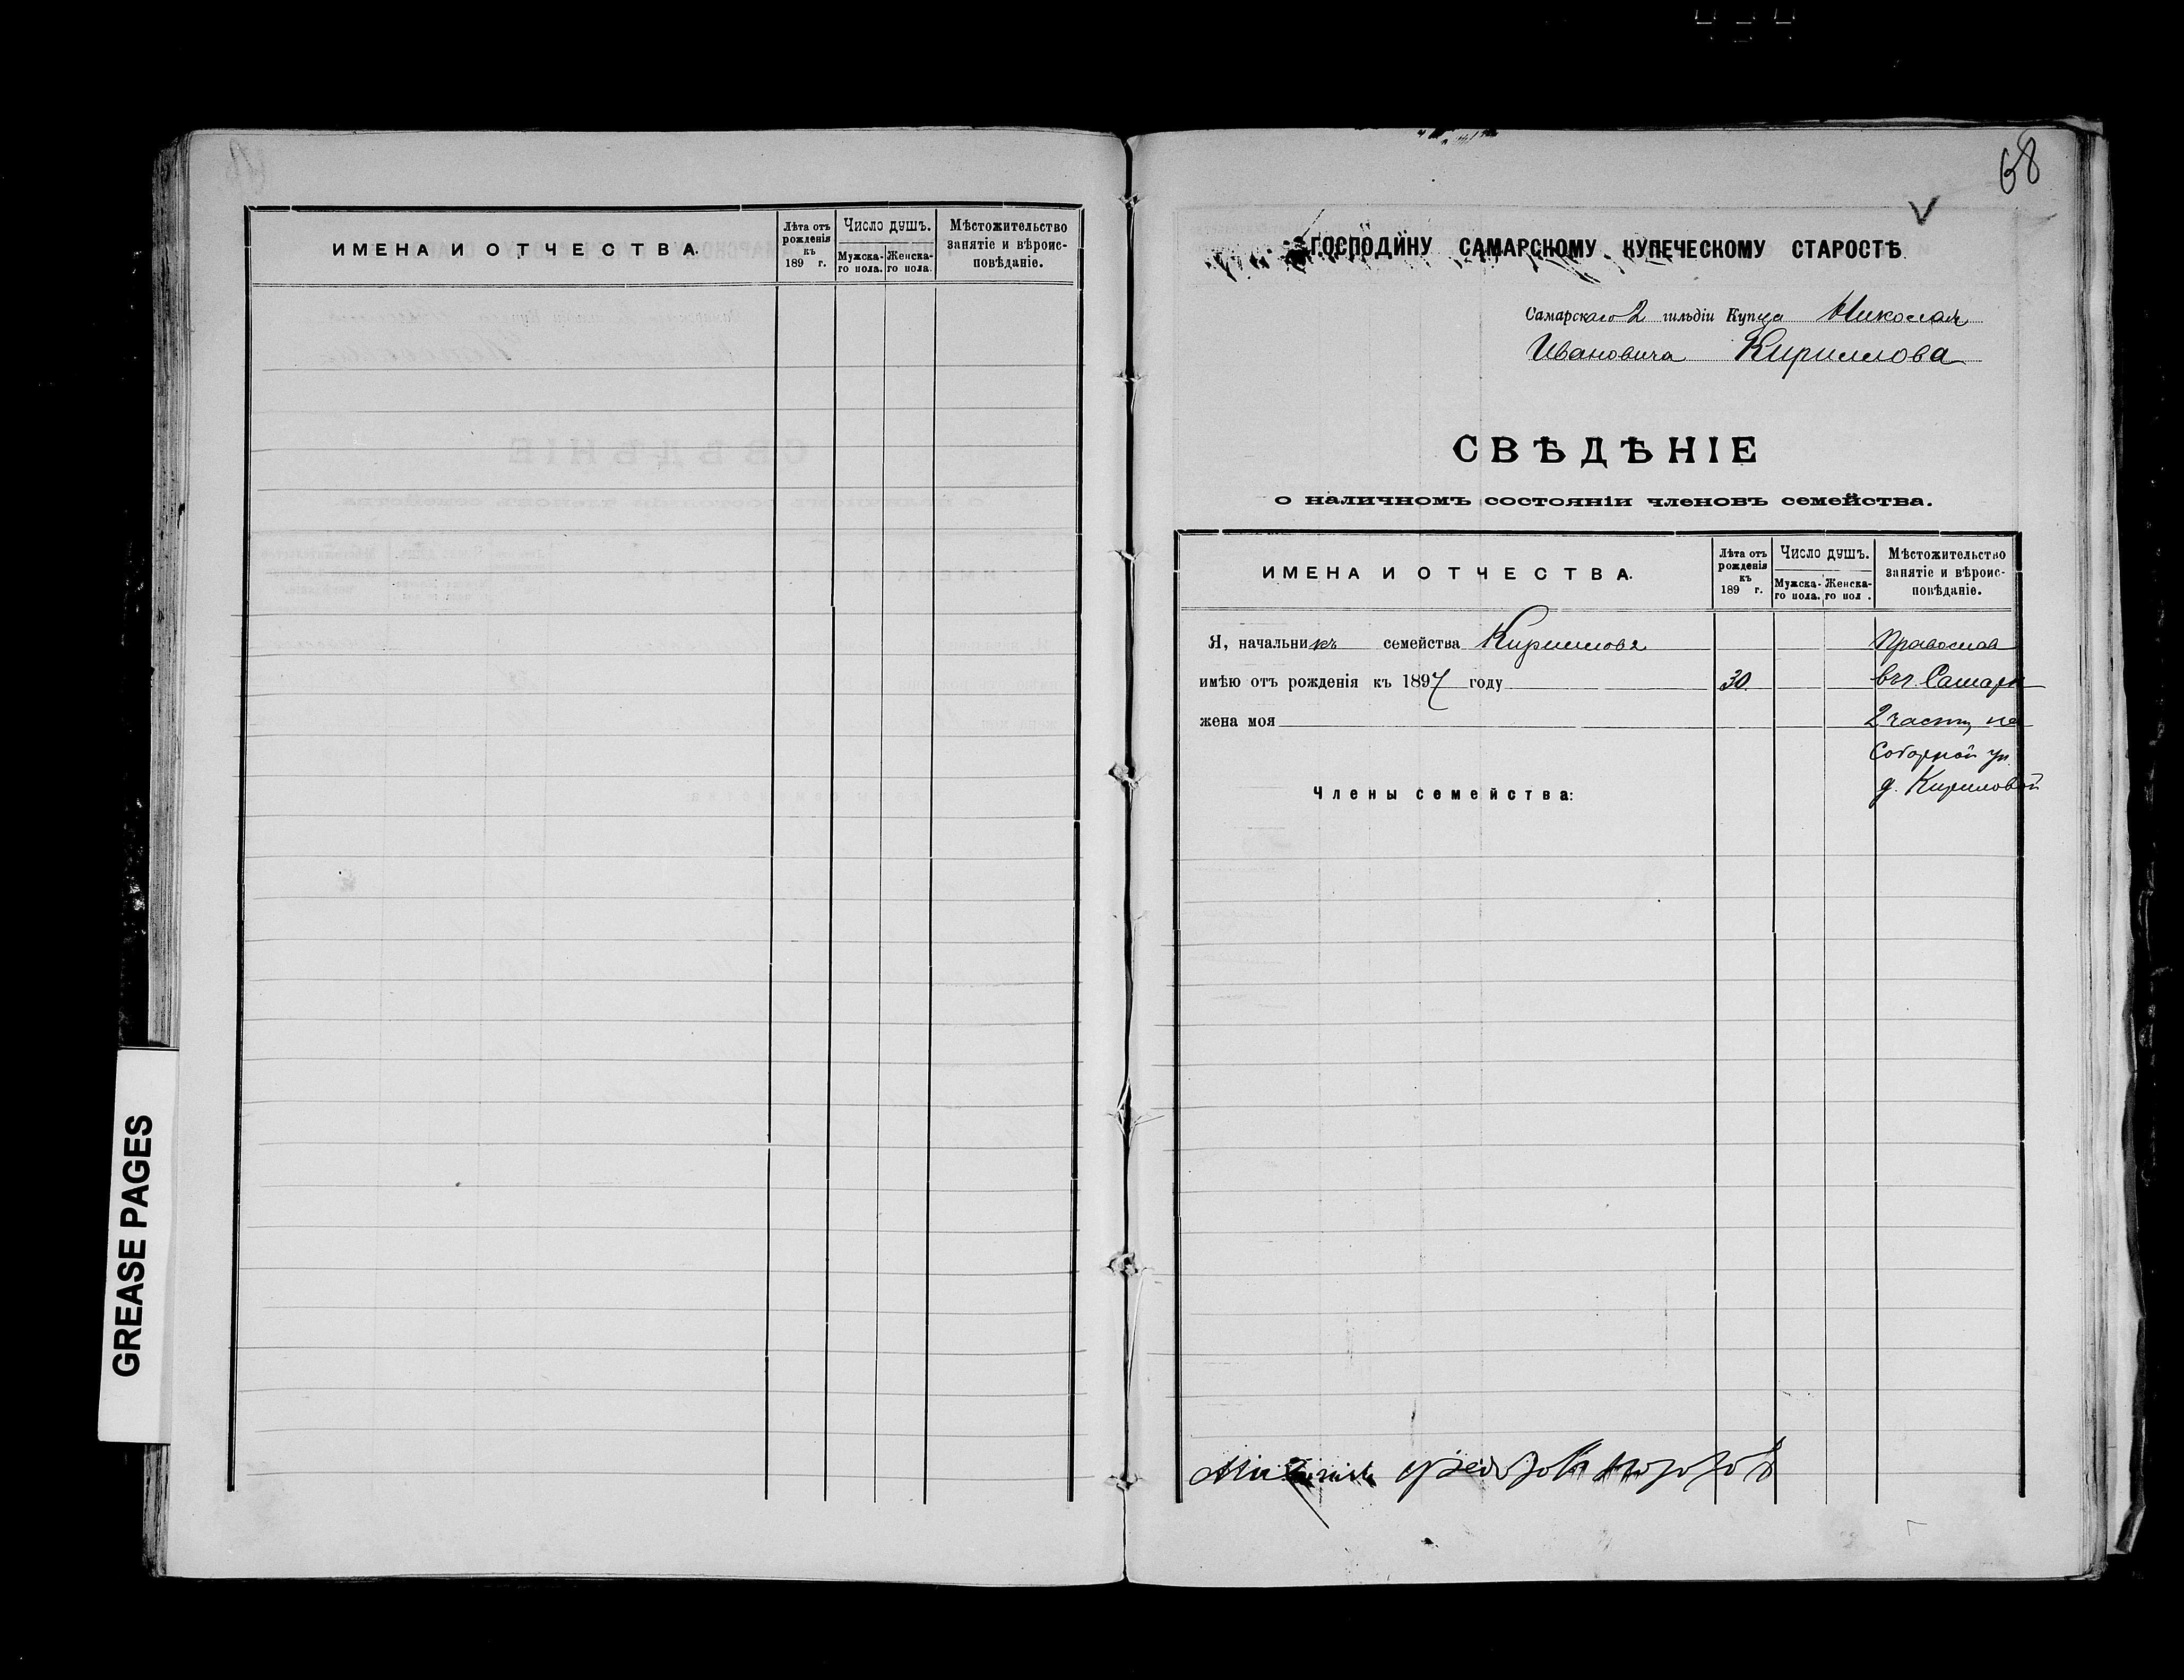 ИМЕНА И ОТЧЕСТВА.
Лѣта отъ рожденія къ 189 г.
Число душъ.
Мужска-го пола.
Женска-го пола.
Мѣстожительство занятіе и вѣроис-повѣданіе.
GREASE PAGES
68
ГОСПОДИНУ САМАРСКОМУ КУПЕЧЕСКОМУ СТАРОСТѢ
Самарскаго 2 гильдіи Купца Николая
Ивановича Кириллова
СВѢДѢНІЕ
о наличномъ состояніи членовъ семейства.
ИМЕНА И ОТЧЕСТВА.
Лѣта отъ рожденія къ 189 г.
Число душъ.
Мужска-го пола.
Женска-го пол .
Мѣстожительство занятіе и вѣроис-повѣданіе.
Я, начальникъ семейства Кирилловъ Православ
имѣю отъ рожденія къ 1897 году 30. въ г. Самарѣ
жена моя 2 части, на
Соборной ул.
Члены семейства: д. Кириловой